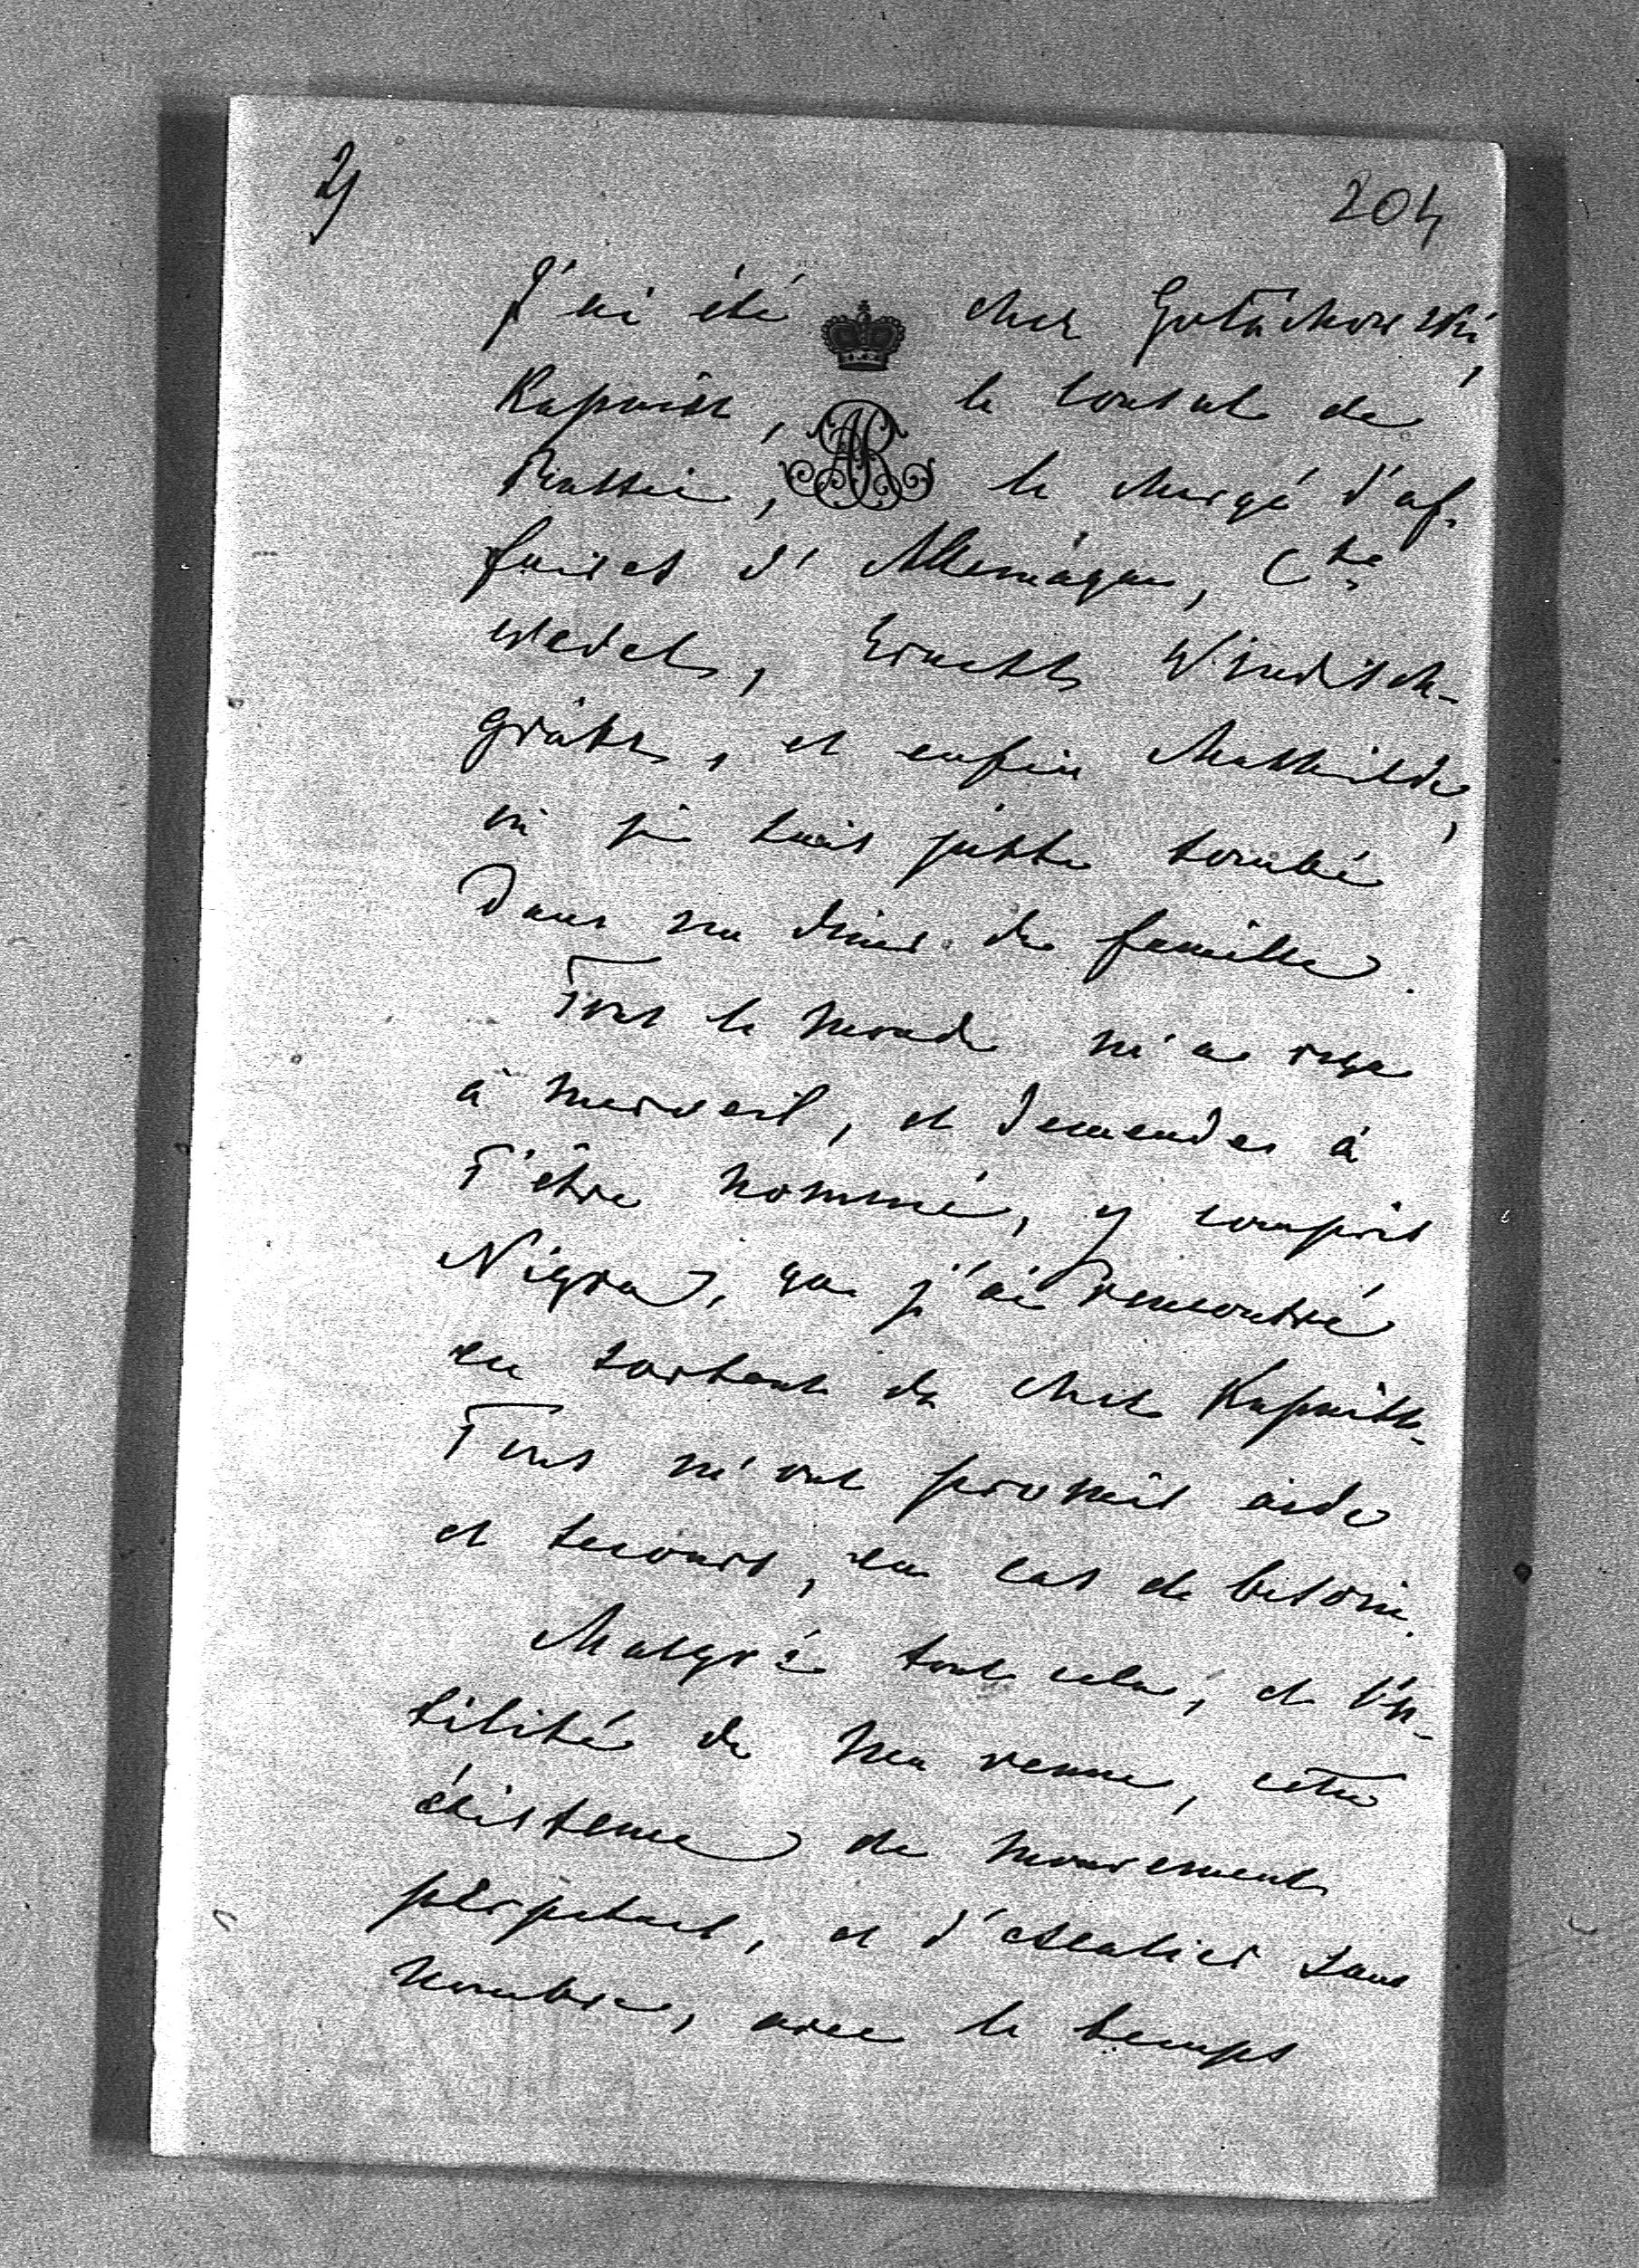 2)
204
J'ai été chez Gołuchowski,
Kapnist, le consul de
Russie, le chargé d'af-
faires d'Allemagne, Cte
Wedel, Ernest Windisch-
grätz, et enfin Mathilde,
où je suis juste tombé
dans un diner de famille.
Tout le monde m'a reçu
à merveil, et demandes à
t'être nommé, y compris
Nigra, que j'ai rencontré
en sortant de chez Kapnist.
Tous m'ont promis aide
et secours, en cas de besoin.
Malgré tout cela, et l'u-
tilité de ma venue, cette
éxistence de mouvement
perpetuel, et d'escalier sans
nombre, avec le temps